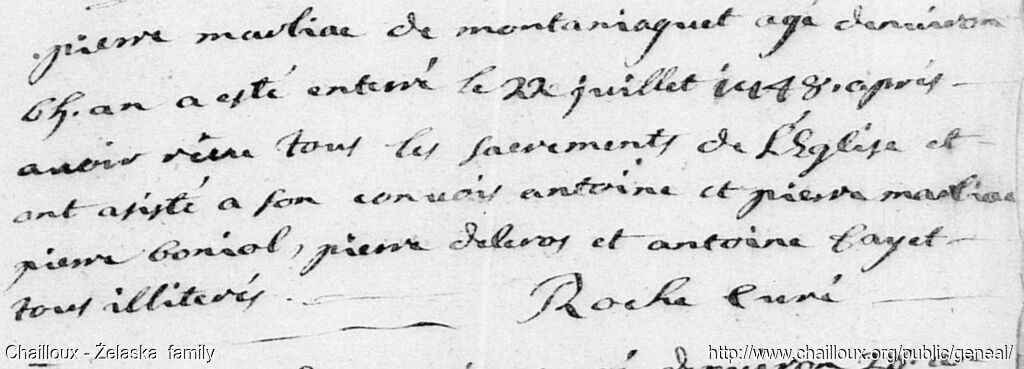 pierre marliac de montaniaguet agé denuiron
an a esté enterré le 22 juillet 1748. aprés
auoir réceu tous les sacrements de L'Eglise et
ont asisté a son conuois antoine et pierre marliac
pierre boniol, pierre delcros et antoine Cayet
tous illiterés. Roche Curé
Chailloux - Żelaska family http://www.chailloux.org/public/geneal/